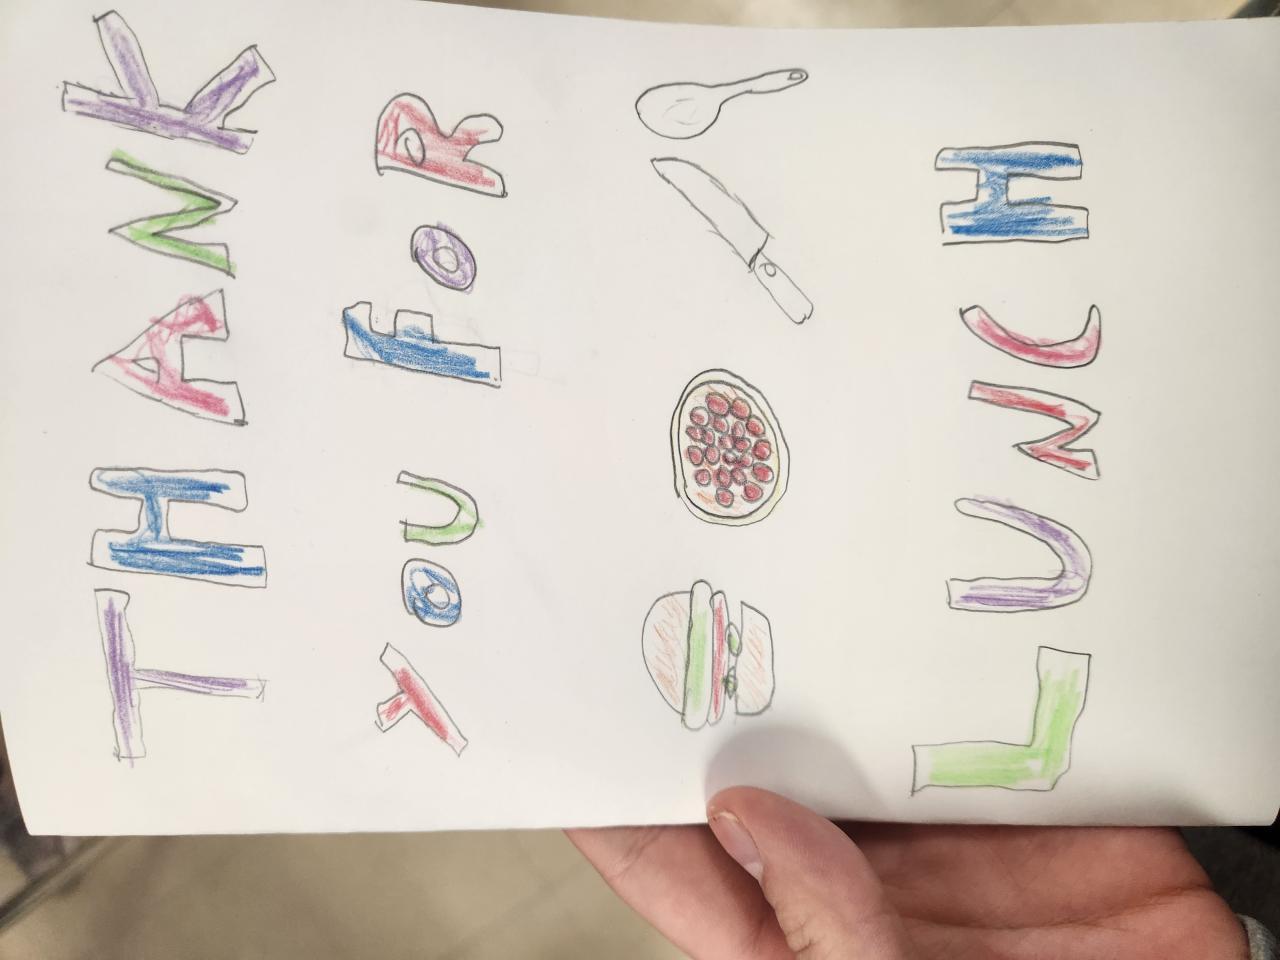 THANK
YOU FOR
LUNCH